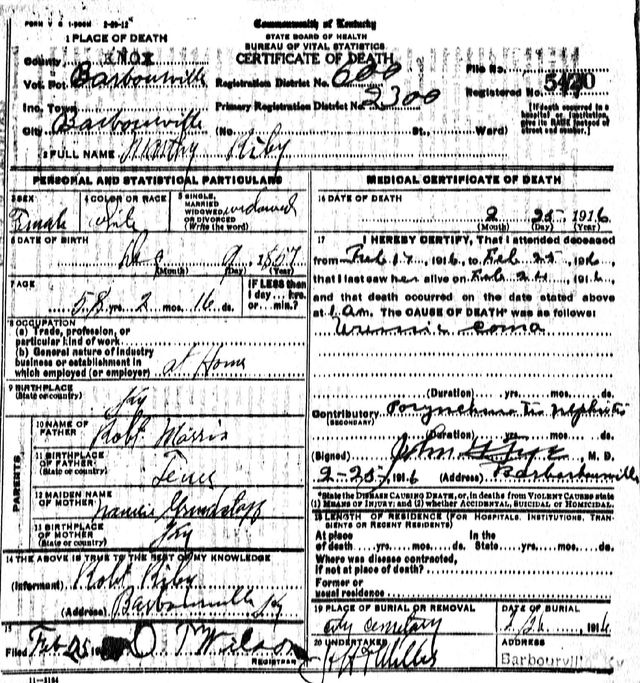 FORM V S 1-500M 2-20-12
Commonwealth of Kentucky
STATE BOARD OF HEALTH
BUREAU OF VITAL STATISTICS
CERTIFICATE OF DEATH
1 PLACE OF DEATH
County KNOX
Vot. Pct. Barbourville
Registration District No. 600
File No.
Registered No. 5420
Inc. Town Barbourville
Primary Registration District No. 2300
City Barbourville (No. St., Ward)
[If death occurred in a hospital or institution, give its NAME instead of street and number.]
2 FULL NAME Kiby
PERSONAL AND STATISTICAL PARTICULARS
3 SEX Female
4 COLOR OR RACE
5 SINGLE, MARRIED WIDOWED, OR DIVORCED (Write the word) widowed
6 DATE OF BIRTH
Dec 9, 1857
(Month) (Day) (Year)
7 AGE
58 yrs. 2 mos. 16 ds.
IF LESS than 1 day... hrs. or... min.?
8 OCCUPATION
(a) Trade, profession, or particular kind of work
(b) General nature of industry business or establishment in which employed (or employer) at Home
9 BIRTHPLACE
(State or country) Ky
PARENTS
10 NAME OF FATHER Robt Morris
11 BIRTHPLACE OF FATHER (State or country) Tenn
12 MAIDEN NAME OF MOTHER Nannie
13 BIRTHPLACE OF MOTHER (State or country) Ky
14 THE ABOVE IS TRUE TO THE BEST OF MY KNOWLEDGE
(Informant) Robt Kiby
(Address) Barbourville Ky
15
Filed Feb 25 Wilson
REGISTRAR
11-3184
MEDICAL CERTIFICATE OF DEATH
16 DATE OF DEATH
2 25 1916
(Month) (Day) (Year)
17 I HEREBY CERTIFY, That I attended deceased
from Feb 17, 1916, to Feb 25, 1916,
that I last saw her alive on Feb 24, 1916,
and that death occurred on the date stated above
at 1 am. The CAUSE OF DEATH* was as follows:
Uremic coma
(Duration) yrs. mos. ds.
Contributory
(SECONDARY)
Nephritis
(Duration) yrs. mos. ds.
(Signed) John, M. D.
2-25, 1916 (Address) Barbourville
*State the DISEASE CAUSING DEATH, or, in deaths from VIOLENT CAUSES state
(1) MEANS OF INJURY; and (2) whether ACCIDENTAL, SUICIDAL or HOMICIDAL.
18 LENGTH OF RESIDENCE (FOR HOSPITALS, INSTITUTIONS, TRANSIENTS OR RECENT RESIDENTS)
At place of death yrs. mos. ds. In the State yrs. mos. ds.
Where was disease contracted,
If not at place of death?
Former or
usual residence
19 PLACE OF BURIAL OR REMOVAL
City Cemetery
DATE OF BURIAL
2 26, 1916
20 UNDERTAKER
Miller
ADDRESS
Barbourville Ky